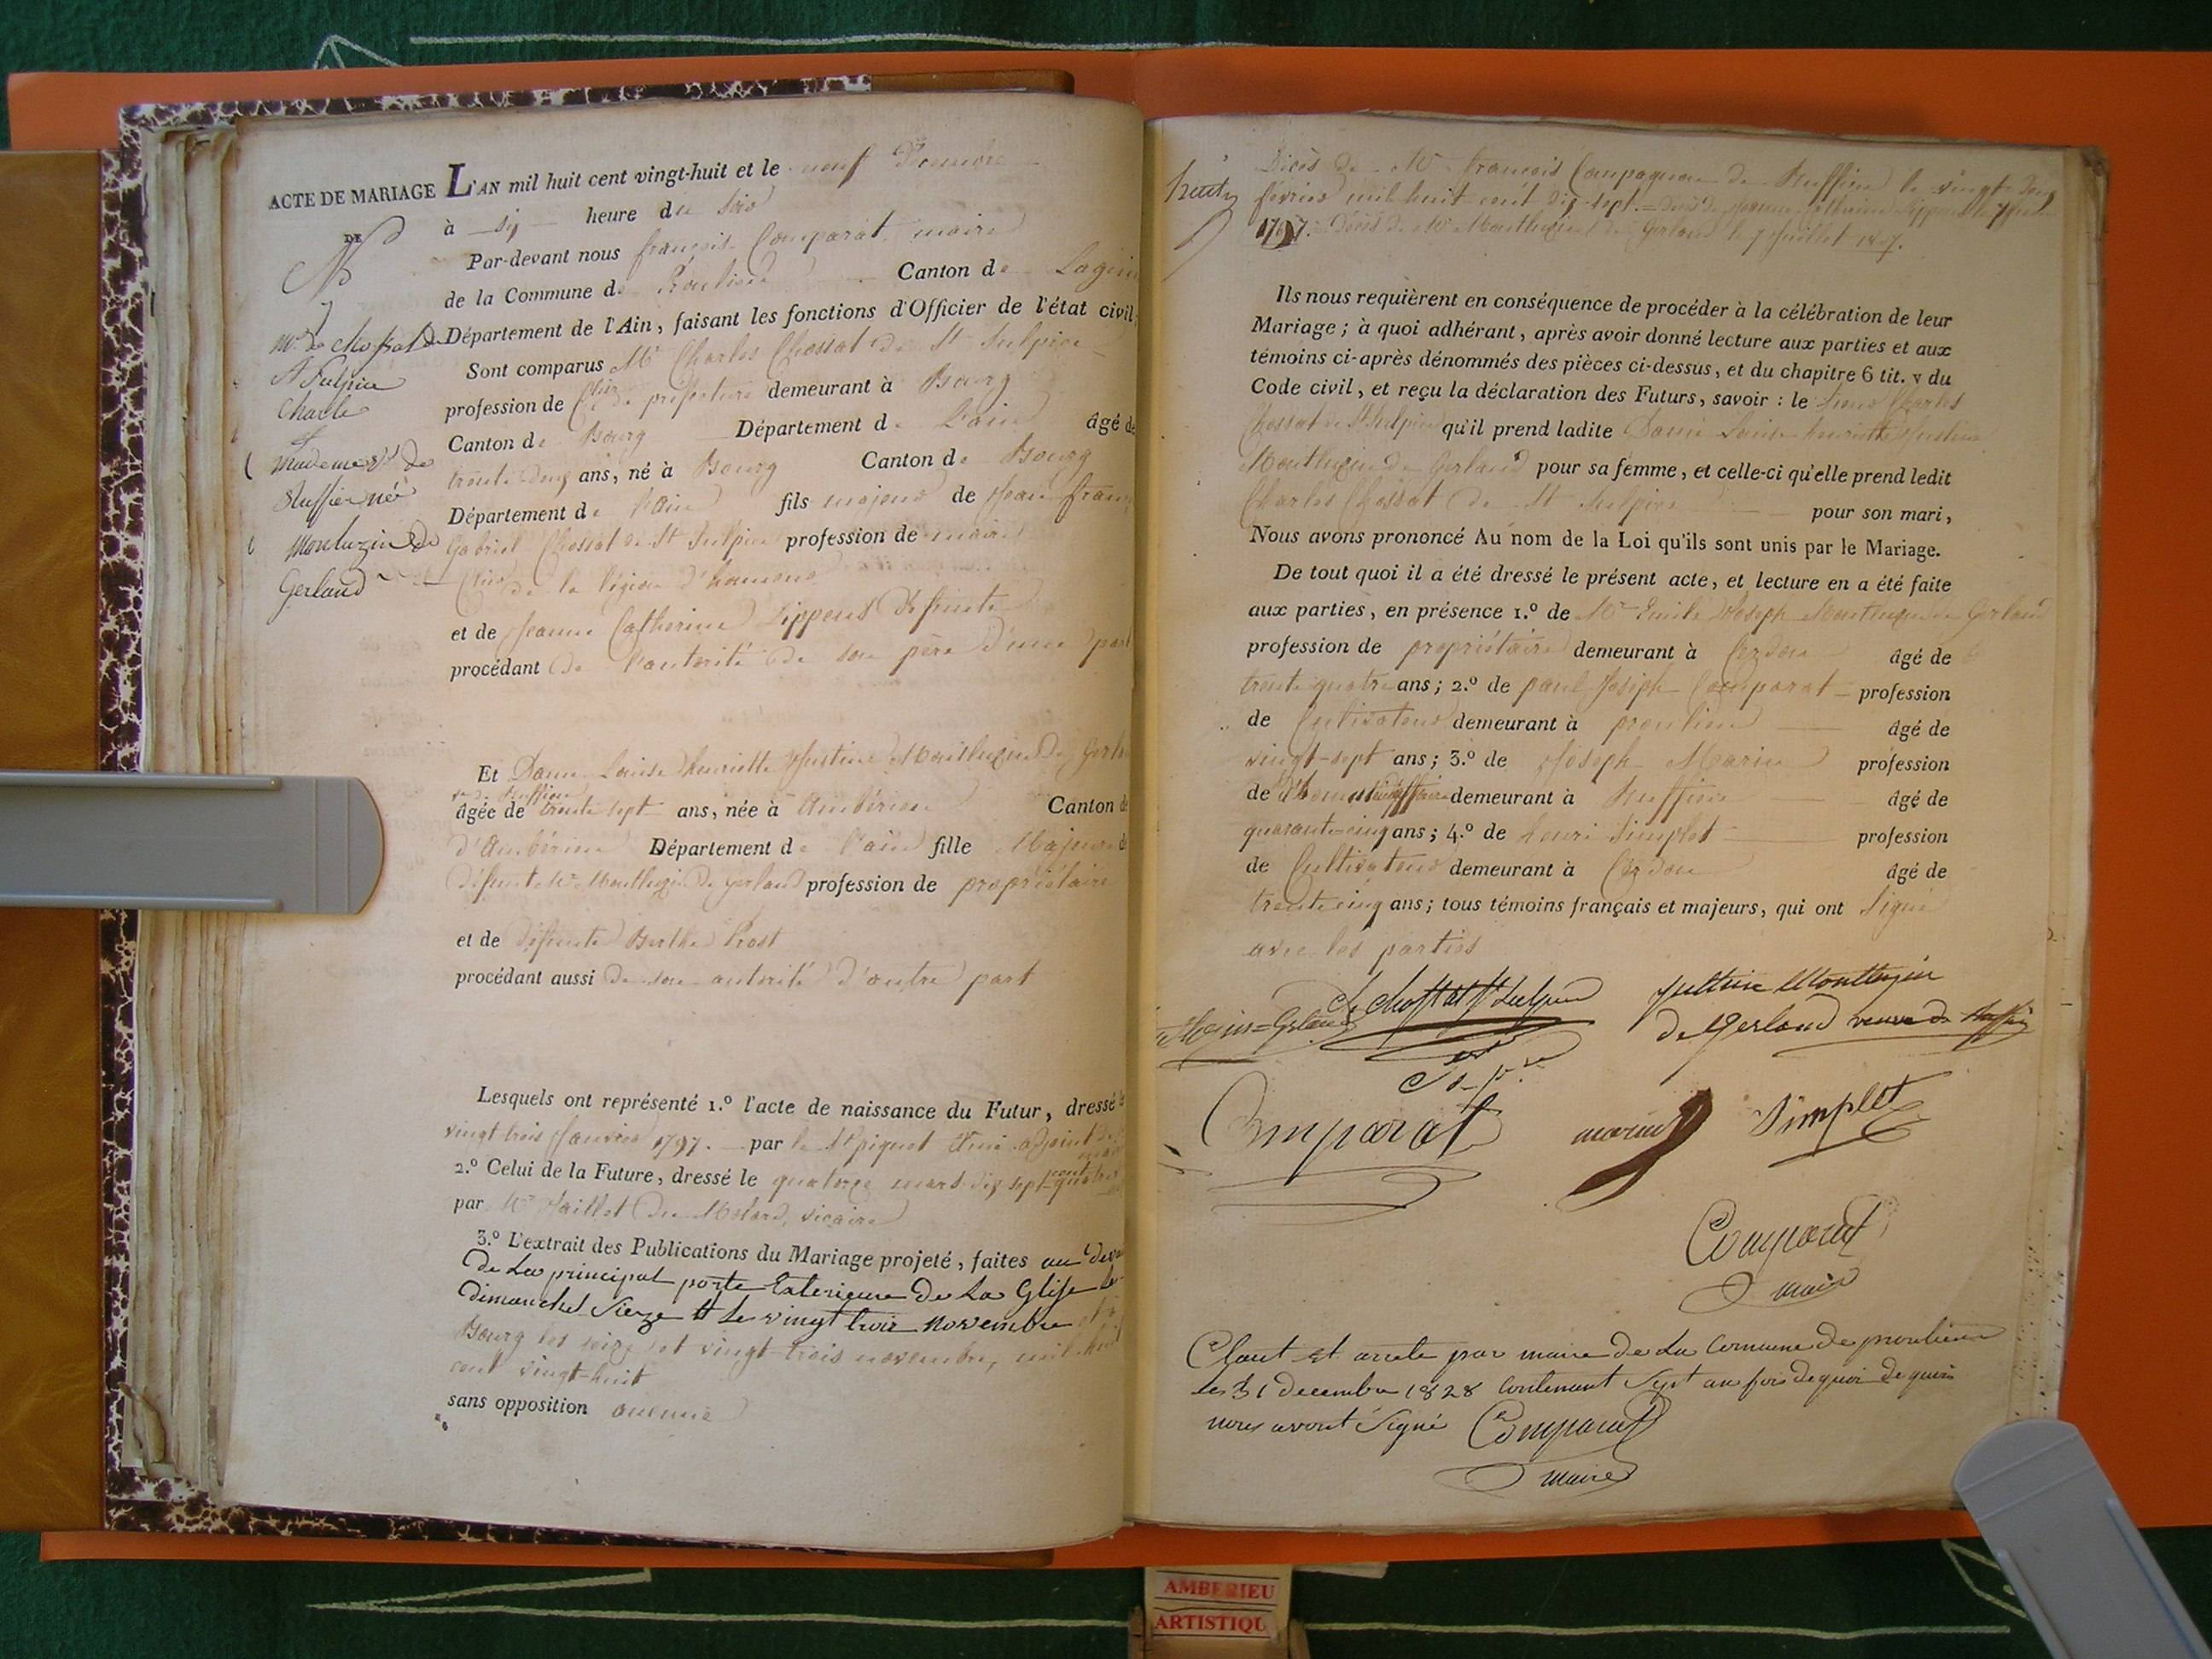 ACTE DE MARIAGE
DE
N°
7
Mr. de chossat de
St Sulpice
Charle
et
Mademe Ve de
Ruffin né
Montuzin de
Gerland
L'AN mil huit cent vingt-huit et le neuf Décembre
à six heure du soir
Par-devant nous françois Comparat, maire
de la Commune de Proulieu Canton de Lagnieu
Département de l'Ain, faisant les fonctions d'Officier de l'état civil;
Sont comparus Mr Charles Chossat de St Sulpice
profession de Cller de préfecture demeurant à Bourg
Canton de Bourg Département de l'ain âgé de
trente deux ans, né à Bourg Canton de Bourg
Département de l'Ain fils majeur de Jean franç
Gabriel Chossat de St Sulpice profession de maire
de la légion d'honneur
et de Jeanne Catherine Lippens défunte
procédant de l'autorité de son père d'une part
Et Dame Louise henriette Justine Montluzin de Gerl
ve de Ruffin
âgée de trente sept ans, née à Ambérieu Canton de
d'Ambérieu Département de l'ain fille Majeure de
défunt Mr Montluzin de Gerland profession de propriétaire
et de défunte Berthe Prost
procédant aussi de son autorité d'autre part
Lesquels ont représenté 1.º l'acte de naissance du Futur, dressé le
vingt trois Janvier 1797. par le Sr piquet adjoint
2.º Celui de la Future, dressé le quatorze mars dix sept cent quatre
par Mr Jaillet du Molard, vicaire
3.º L'extrait des Publications du Mariage projeté, faites au deva
de La principal porte Exterieure de La Glise le
dimanche Sieze et Le vingt trois novembre et à
Bourg les seize et vingt trois novembre, mil huit
cent vingt-huit
sans opposition aucune
huit
Décès de Mr François Compagnon de Ruffieu le vingt deux
février mil huit cent dix-sept. = Décès de Jeanne Catherine Lippens le
1797. Décès de Mr Montluzin de Gerland le 7 Juillet 1807.
Ils nous requièrent en conséquence de procéder à la célébration de leur
Mariage; à quoi adhérant, après avoir donné lecture aux parties et aux
témoins ci-après dénommés des pièces ci-dessus, et du chapitre 6 tit. v du
Code civil, et reçu la déclaration des Futurs, savoir: le sieur Charles
Chossat de St Sulpice qu'il prend ladite Dame Louise henriette Justine
Montluzin de Gerland pour sa femme, et celle-ci qu'elle prend ledit
Charles Chossat de St Sulpice pour son mari,
Nous avons prononcé Au nom de la Loi qu'ils sont unis par le Mariage.
De tout quoi il a été dressé le présent acte, et lecture en a été faite
aux parties, en présence 1.º de Mr Emile Joseph Montluzin de Gerland
profession de propriétaire demeurant à Cerdon âgé de
trente quatre ans; 2.º de paul Joseph Comparat profession
de Cultivateur demeurant à proulieu âgé de
vingt-sept ans; 3.º de Joseph Marin profession
de d'homme d'affaire demeurant à Ruffieu âgé de
quarante cinq ans; 4.º de henri Simplet profession
de Cultivateur demeurant à Cerdon âgé de
trente cinq ans; tous témoins français et majeurs, qui ont Signé
avec les parties
Ch. Chossat St Sulpice
Justine Montluzin
de Gerland veuve de Ruffin
Comparat
marin
Simplet
Comparat
maire
Claut et arrete par maire de La Comune de proulieu
Le 31 decembre 1828 Contenant Sept au fois de quoi de quoi
nous avont Signé Comparat
maire
AMBERIEU
ARTISTIQU